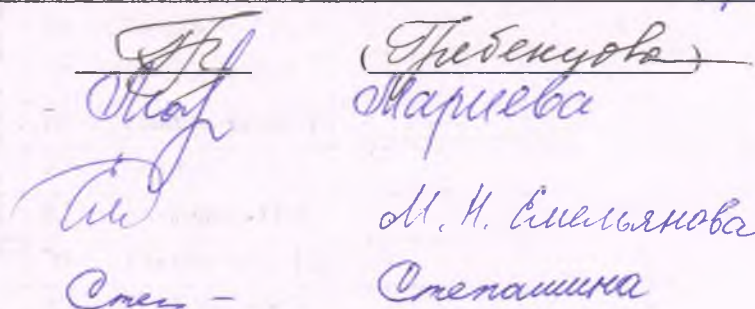 (Гребенцова)
Мариева
М. Н. Емельянова
Степ – Степашина